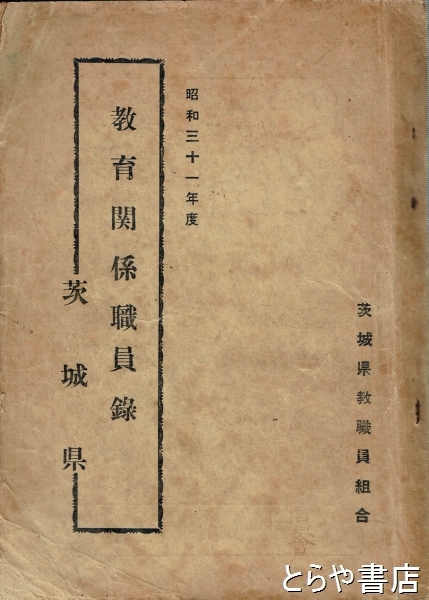 茨城県教職員組合
昭和三十一年度
教育関係職員録
茨城県
とらや書店